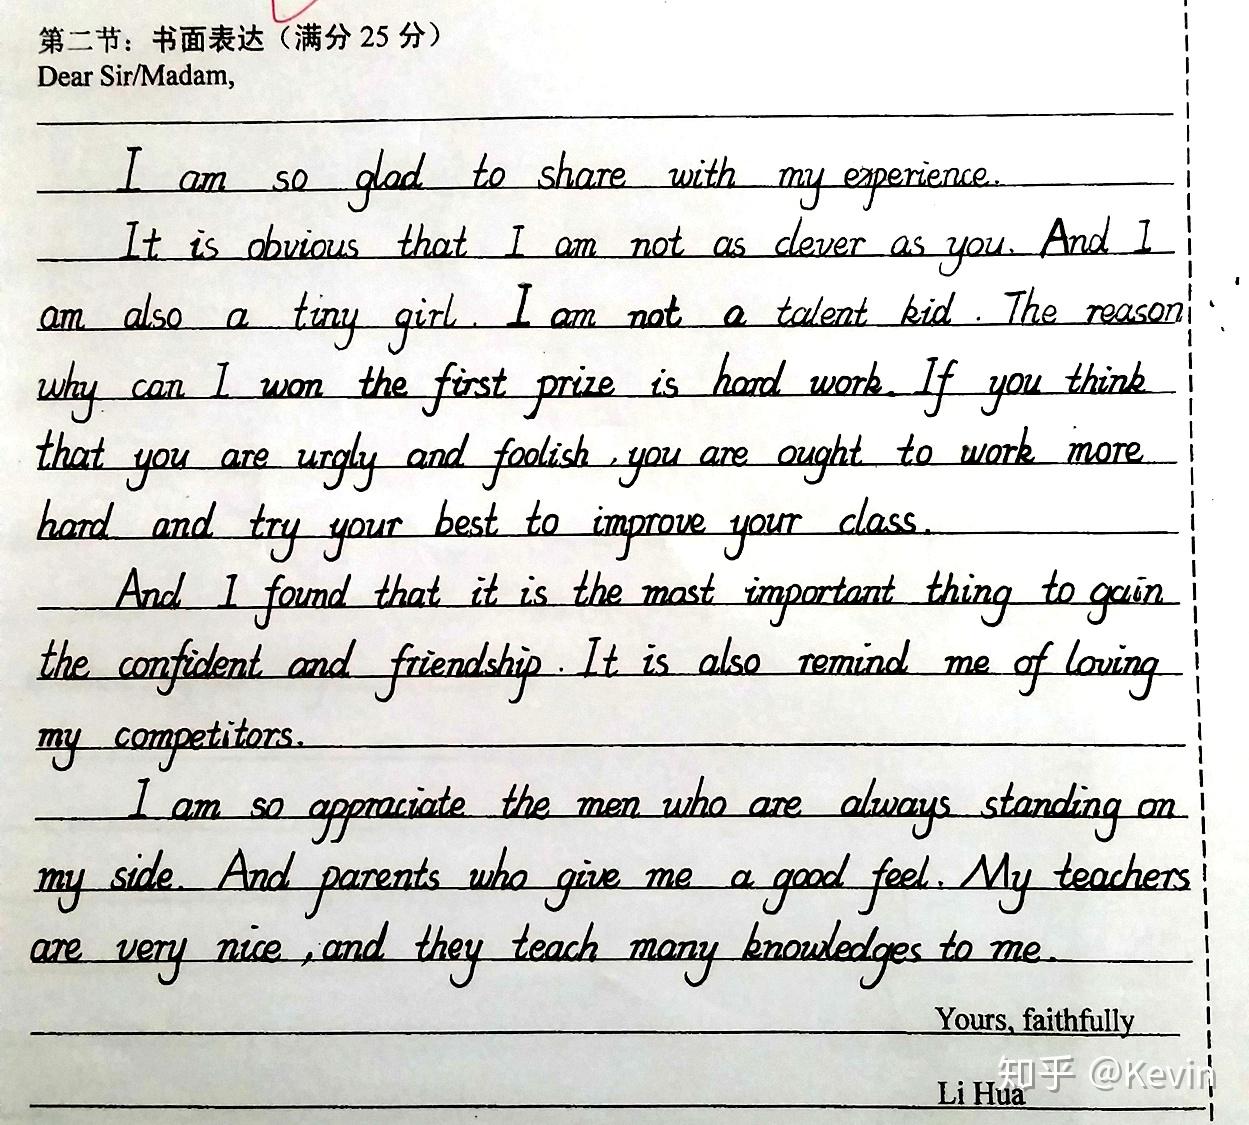 第二节：书面表达（满分 25 分）
Dear Sir/Madam,
I am so glad to share with my experience.
It is obvious that I am not as clever as you. And I
am also a tiny girl. I am not a talent kid. The reason
why can I won the first prize is hard work. If you think
that you are urgly and foolish, you are ought to work more
hard and try your best to improve your class.
And I found that it is the most important thing to gain
the confident and friendship. It is also remind me of loving
my competitors.
I am so appraciate the men who are always standing on
my side. And parents who give me a good feel. My teachers
are very nice, and they teach many knowledges to me.
Yours, faithfully
知乎 @Kevin
Li Hua